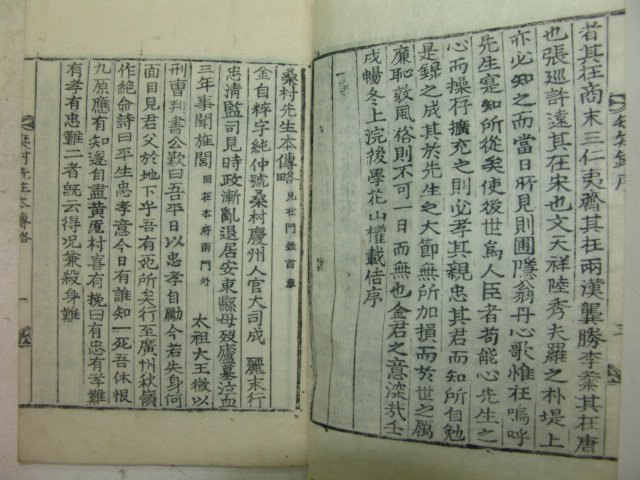 者其在商末三仁夷齊其在兩漢龔勝李業其在唐
也張巡許遠其在宋也文天祥陸秀夫羅之朴堤上
亦必知之而當日所見則圃隱翁丹心歌惟在嗚呼
先生寔知所從矣使後世爲人臣者苟能心先生之
心而操存擴充之則必孝其親忠其君而知所自勉
是錄之成其於先生之大節無所加損而於世之厲
廉恥敦風俗則不可一日而無也金君之意深哉壬
戌暢冬上浣後學花山權載佶序
桑村先生本傳略 見杜門錄首章
金自粹字純仲號桑村慶州人官大司成 麗末行
忠清監司見時政漸亂退居安東縣母歿廬墓泣血
三年事聞旌閭 閭在本府南門外 太祖大王徵以
刑曹判書公歎曰吾平日以忠孝自勵今若失身何
面目見君父於地下乎吾有死所矣行至廣州秋嶺
作絶命詩曰平生忠孝意今日有誰知一死吾休恨
九原應有知遂自盡黃厖村喜有挽曰有忠有孝難
有孝有忠難二者旣云得况兼殺身難
桑村先生本傳略
一